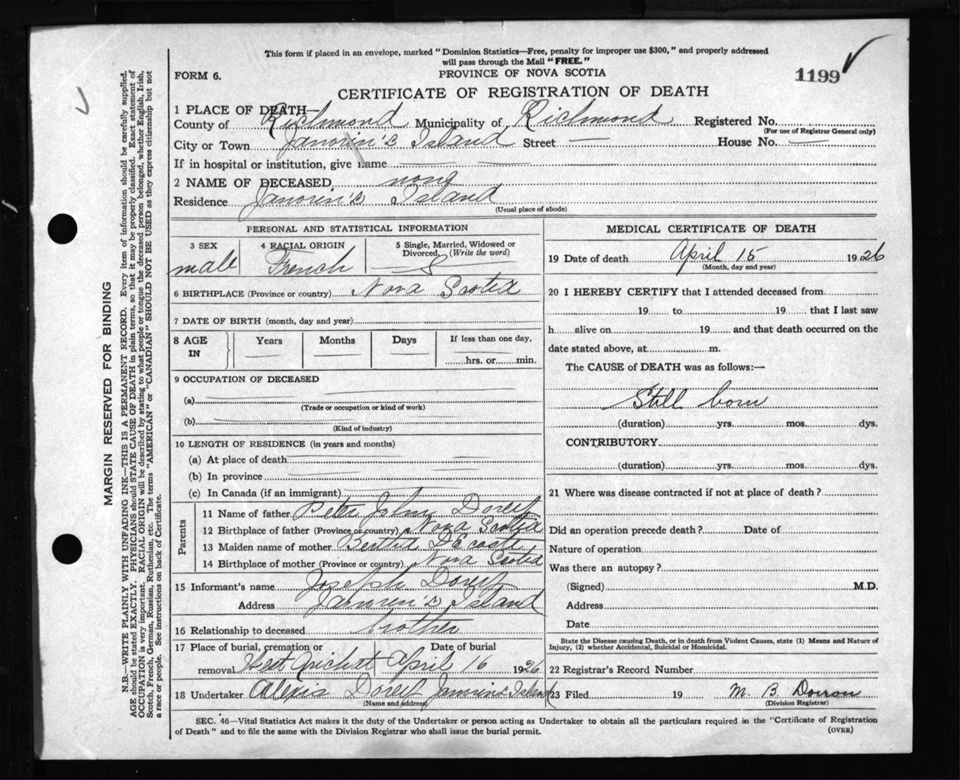 This form if placed in an envelope, marked "Dominion Statistics—Free, penalty for improper use $300," and properly addressed
will pass through the Mail "FREE."
FORM 6.
PROVINCE OF NOVA SCOTIA
1199
CERTIFICATE OF REGISTRATION OF DEATH
1 PLACE OF DEATH—
County of Richmond Municipality of Richmond Registered No.
(For use of Registrar General only)
City or Town Janvrin's Island Street — House No. —
If in hospital or institution, give name
2 NAME OF DECEASED,
Residence Janvrin's Island
(Usual place of abode)
PERSONAL AND STATISTICAL INFORMATION
3 SEX male
4 RACIAL ORIGIN French
5 Single, Married, Widowed or Divorced. (Write the word)
6 BIRTHPLACE (Province or country) Nova Scotia
7 DATE OF BIRTH (month, day and year)
8 AGE IN Years Months Days If less than one day, hrs. or min.
9 OCCUPATION OF DECEASED
(a)
(Trade or occupation or kind of work)
(b)
(Kind of industry)
10 LENGTH OF RESIDENCE (in years and months)
(a) At place of death
(b) In province
(c) In Canada (if an immigrant)
Parents
11 Name of father Peter John
12 Birthplace of father (Province or country) Nova Scotia
13 Maiden name of mother
14 Birthplace of mother (Province or country) Nova Scotia
15 Informant's name Joseph
Address Janvrin's Island
16 Relationship to deceased brother
17 Place of burial, cremation or removal West Arichat Date of burial April 16 1926
18 Undertaker Alexis Janvrins Island
(Name and address)
MEDICAL CERTIFICATE OF DEATH
19 Date of death April 15 1926
(Month, day and year)
20 I HEREBY CERTIFY that I attended deceased from
19 to 19 that I last saw
h alive on 19 and that death occurred on
date stated above, at m.
The CAUSE of DEATH was as follows:—
Still born
(duration) yrs. mos. dys.
CONTRIBUTORY
(duration) yrs. mos. dys.
21 Where was disease contracted if not at place of death?
Did an operation precede death? Date of
Nature of operation
Was there an autopsy?
(Signed) M.D.
Address
Date
State the Disease causing Death, or in death from Violent Causes, state (1) Means and Nature of
Injury, (2) whether Accidental, Suicidal or Homicidal.
22 Registrar's Record Number
23 Filed 19 M. B. Doiron
(Division Registrar)
SEC. 46—Vital Statistics Act makes it the duty of the Undertaker or person acting as Undertaker to obtain all the particulars required in the "Certificate of Registration
of Death" and to file the same with the Division Registrar who shall issue the burial permit.
(OVER)
MARGIN RESERVED FOR BINDING
N.B.—WRITE PLAINLY WITH UNFADING INK—THIS IS A PERMANENT RECORD. Every item of information should be carefully supplied.
AGE should be stated EXACTLY. PHYSICIANS should STATE CAUSE OF DEATH in plain terms, so that it may be properly classified. Exact statement of
OCCUPATION is very important. RACIAL ORIGIN will be described by stating to what people or tongue the deceased person belonged, whether English, Irish,
Scotch, French, German, Russian, Ruthenian, etc. The terms "AMERICAN" or "CANADIAN" SHOULD NOT BE USED as they express citizenship but not
a race or people. See instructions on back of Certificate.